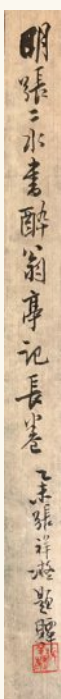 明張二水書醉翁亭記長卷
乙未張祥凝題耑